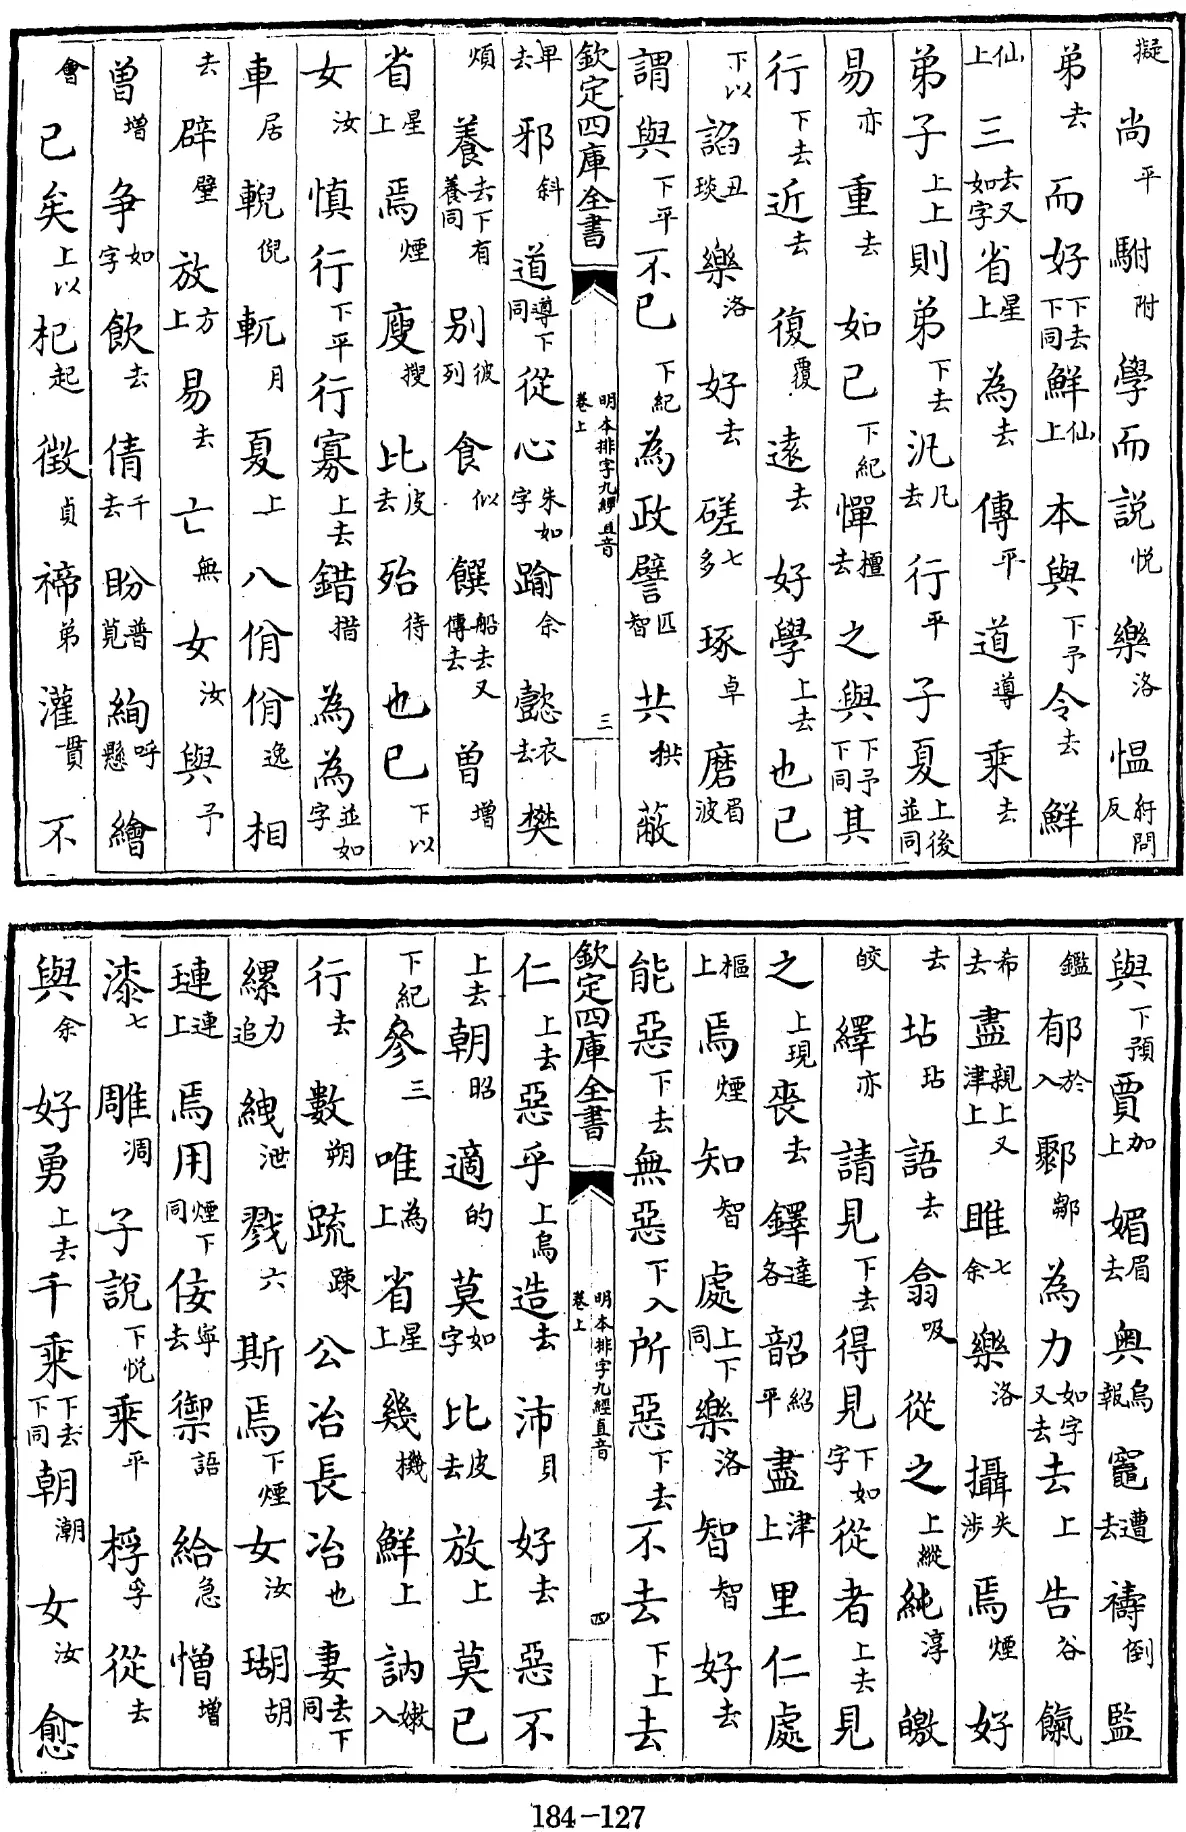 擬尚平駙附學而說悅樂洛愠紆問反
弟去而好下去下同鮮仙上本與下予令去鮮
仙上三去又如字省星上為去傳平道導乘去
弟子上上則弟下去汎凡去行平子夏上後並同
易亦重去如己下紀憚檀去之與下予下同其
行下去近去復覆遠去好學上去也已
下以諂丑琰樂洛好去磋七多琢卓磨眉波
謂與下平不已下紀為政譬匹智共拱蔽
欽定四庫全書
明本排字九經直音
卷上
三
卑去邪斜道導下同從心朱如字踰余懿衣去樊
煩養去下有養同別彼列食似饌船去又傳去曾增
省星上焉煙廋搜比皮去殆待也已下以
女汝慎行下平行寡上去錯措為為並如字
車居輗倪軏月夏上八佾佾逸相
去辟璧放方上易去亡無女汝與予
曾增争如字飲去倩千去盼普莧絢呼懸繪
會已矣上以杞起徵貞禘弟灌貫不
與下預賈加上媚眉去奧烏報竈遭去禱倒監
鑑郁於入鄹鄒為力如字又去去上告谷餼
希去盡親上又津上雎七余樂洛攝失涉焉煙好
去坫玷語去翕吸從之上縱純淳皦
皎繹亦請見下去得見下如字從者上去見
之上現喪去鐸達各韶紹平盡津上里仁處
樞上焉煙知智處上下同樂洛智智好去
能惡下去無惡下入所惡下去不去下上去
欽定四庫全書
明本排字九經直音
卷上
四
仁上去惡乎上烏造去沛貝好去惡不
上去朝昭適的莫如字比皮去放上莫已
下紀參三唯為上省星上幾機鮮上訥嫩入
行去數朔疏踈公冶長冶也妻去下同
縲力追絏泄戮六斯焉下煙女汝瑚胡
璉連上焉用煙下同佞寧去禦語給急憎增
漆七雕凋子說下悅乘平桴孚從去
與余好勇上去千乘下去下同朝潮女汝愈
184-127